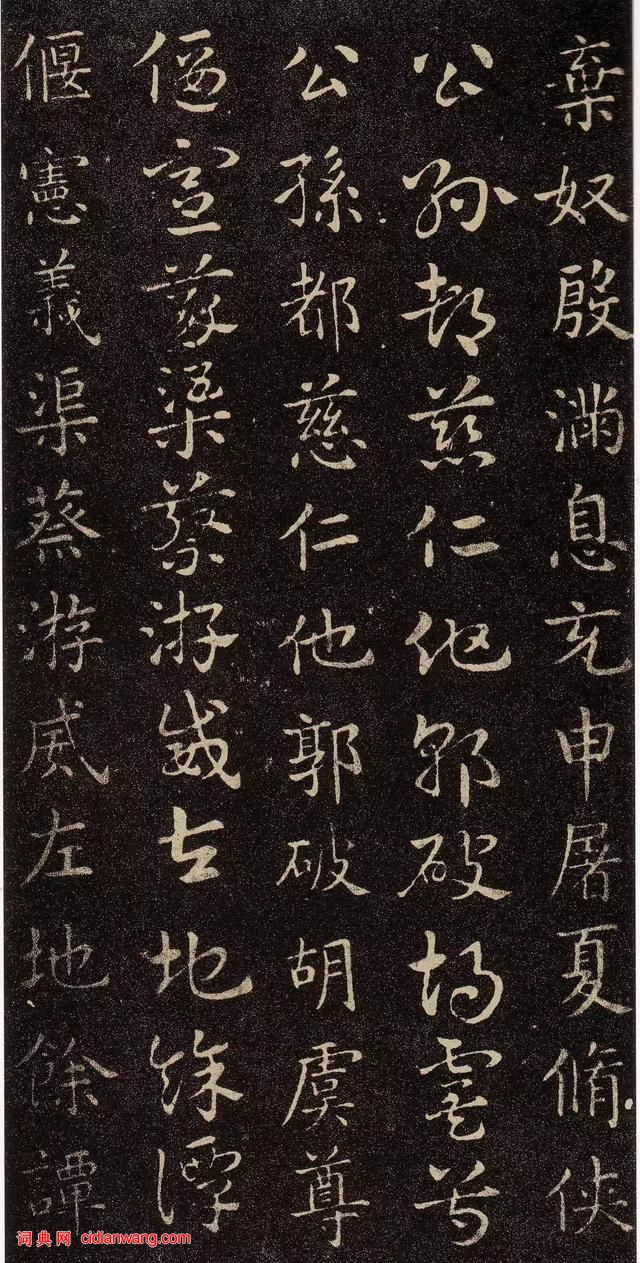 棄奴殷滿息充申屠夏脩俠
公孫都慈仁他郭破胡虞尊
公孫都慈仁他郭破胡虞尊
偃憲義渠蔡游威左地餘譚
偃憲義渠蔡游威左地餘譚
词典网 cidianwang.com